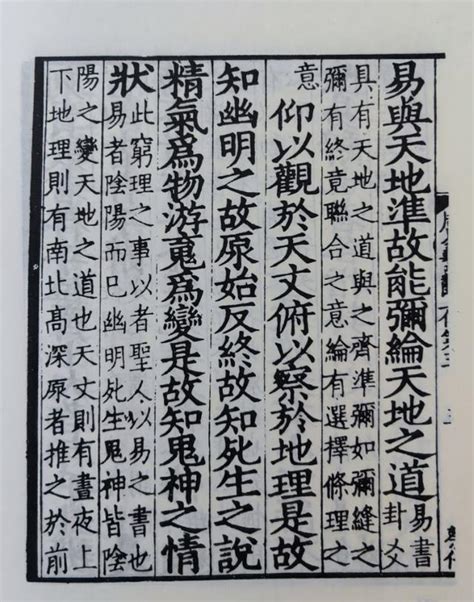 易與天地準故能彌綸天地之道易書
卦爻
具有天地之道與之齊準彌如彌縫之
彌有終竟聯合之意綸有選擇條理之
意
仰以觀於天文俯以察於地理是故
知幽明之故原始反終故知死生之說
精氣爲物游䰟爲變是故知鬼神之情
狀此窮理之事以者聖人以易之書也
易者陰陽而已幽明死生鬼神皆陰
陽之變天地之道也天文則有晝夜上
下地理則有南北高深原者推之於前